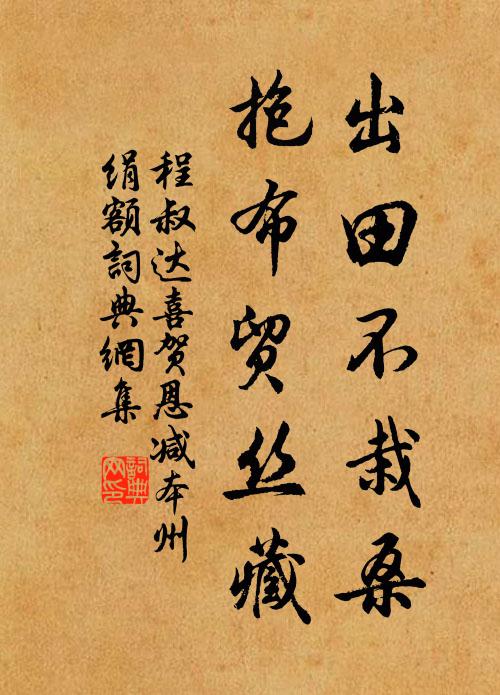 出田不栽桑
抱布贸丝藏
程叔达喜贺恩减本州
绢额詞典網集
詞典
网印